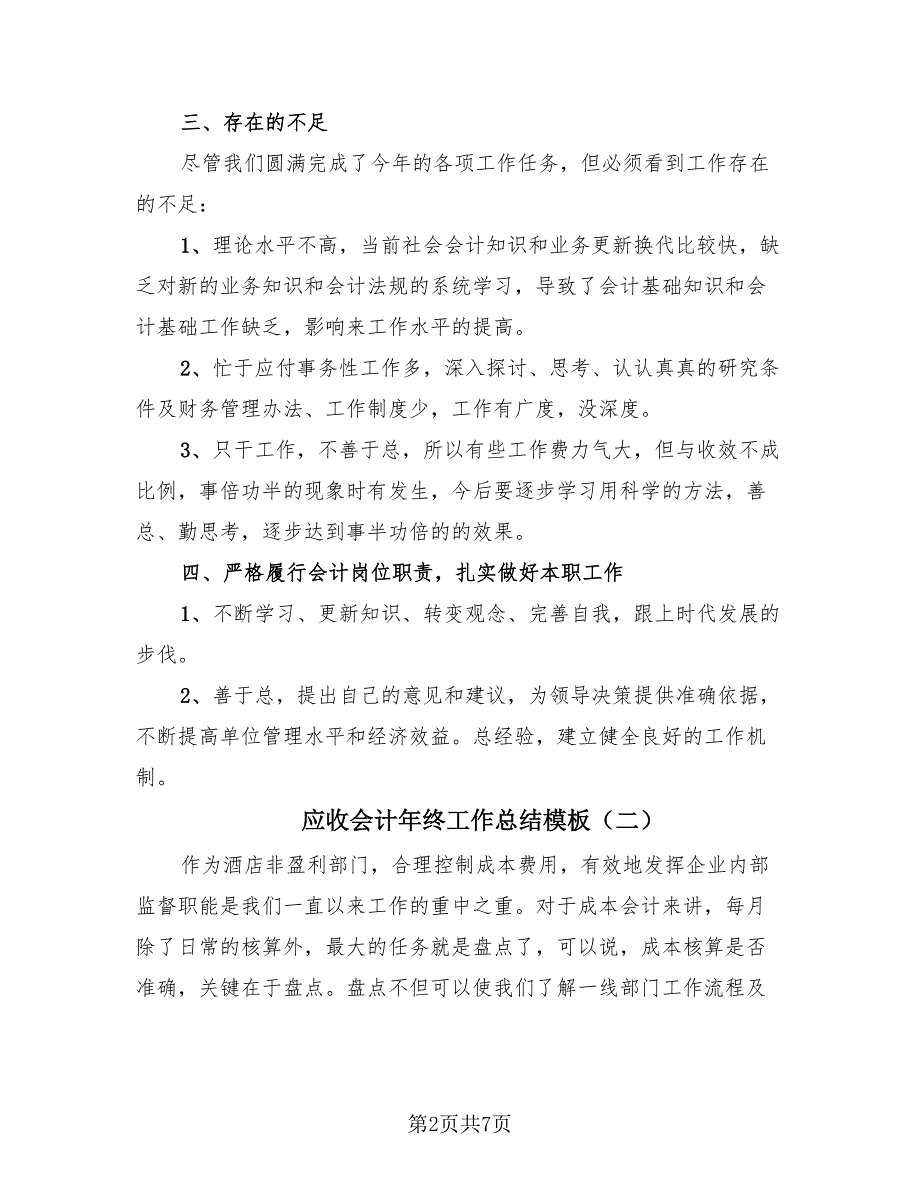 三、存在的不足
尽管我们圆满完成了今年的各项工作任务，但必须看到工作存在
的不足：
1、理论水平不高，当前社会会计知识和业务更新换代比较快，缺
乏对新的业务知识和会计法规的系统学习，导致了会计基础知识和会
计基础工作缺乏，影响来工作水平的提高。
2、忙于应付事务性工作多，深入探讨、思考、认认真真的研究条
件及财务管理办法、工作制度少，工作有广度，没深度。
3、只干工作，不善于总，所以有些工作费力气大，但与收效不成
比例，事倍功半的现象时有发生，今后要逐步学习用科学的方法，善
总、勤思考，逐步达到事半功倍的的效果。
四、严格履行会计岗位职责，扎实做好本职工作
1、不断学习、更新知识、转变观念、完善自我，跟上时代发展的
步伐。
2、善于总，提出自己的意见和建议，为领导决策提供准确依据，
不断提高单位管理水平和经济效益。总经验，建立健全良好的工作机
制。
应收会计年终工作总结模板（二）
作为酒店非盈利部门，合理控制成本费用，有效地发挥企业内部
监督职能是我们一直以来工作的重中之重。对于成本会计来讲，每月
除了日常的核算外，最大的任务就是盘点了，可以说，成本核算是否
准确，关键在于盘点。盘点不但可以使我们了解一线部门工作流程及
第2页共7页